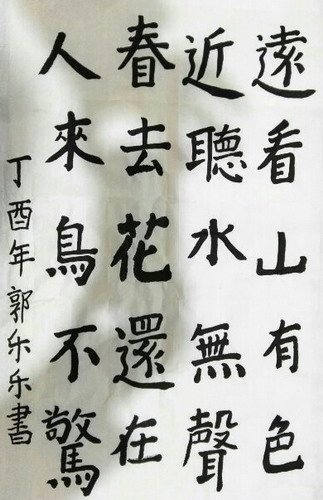 遠看山有色
近聽水無聲
春去花還在
人來鳥不驚
丁酉年郭乐乐書